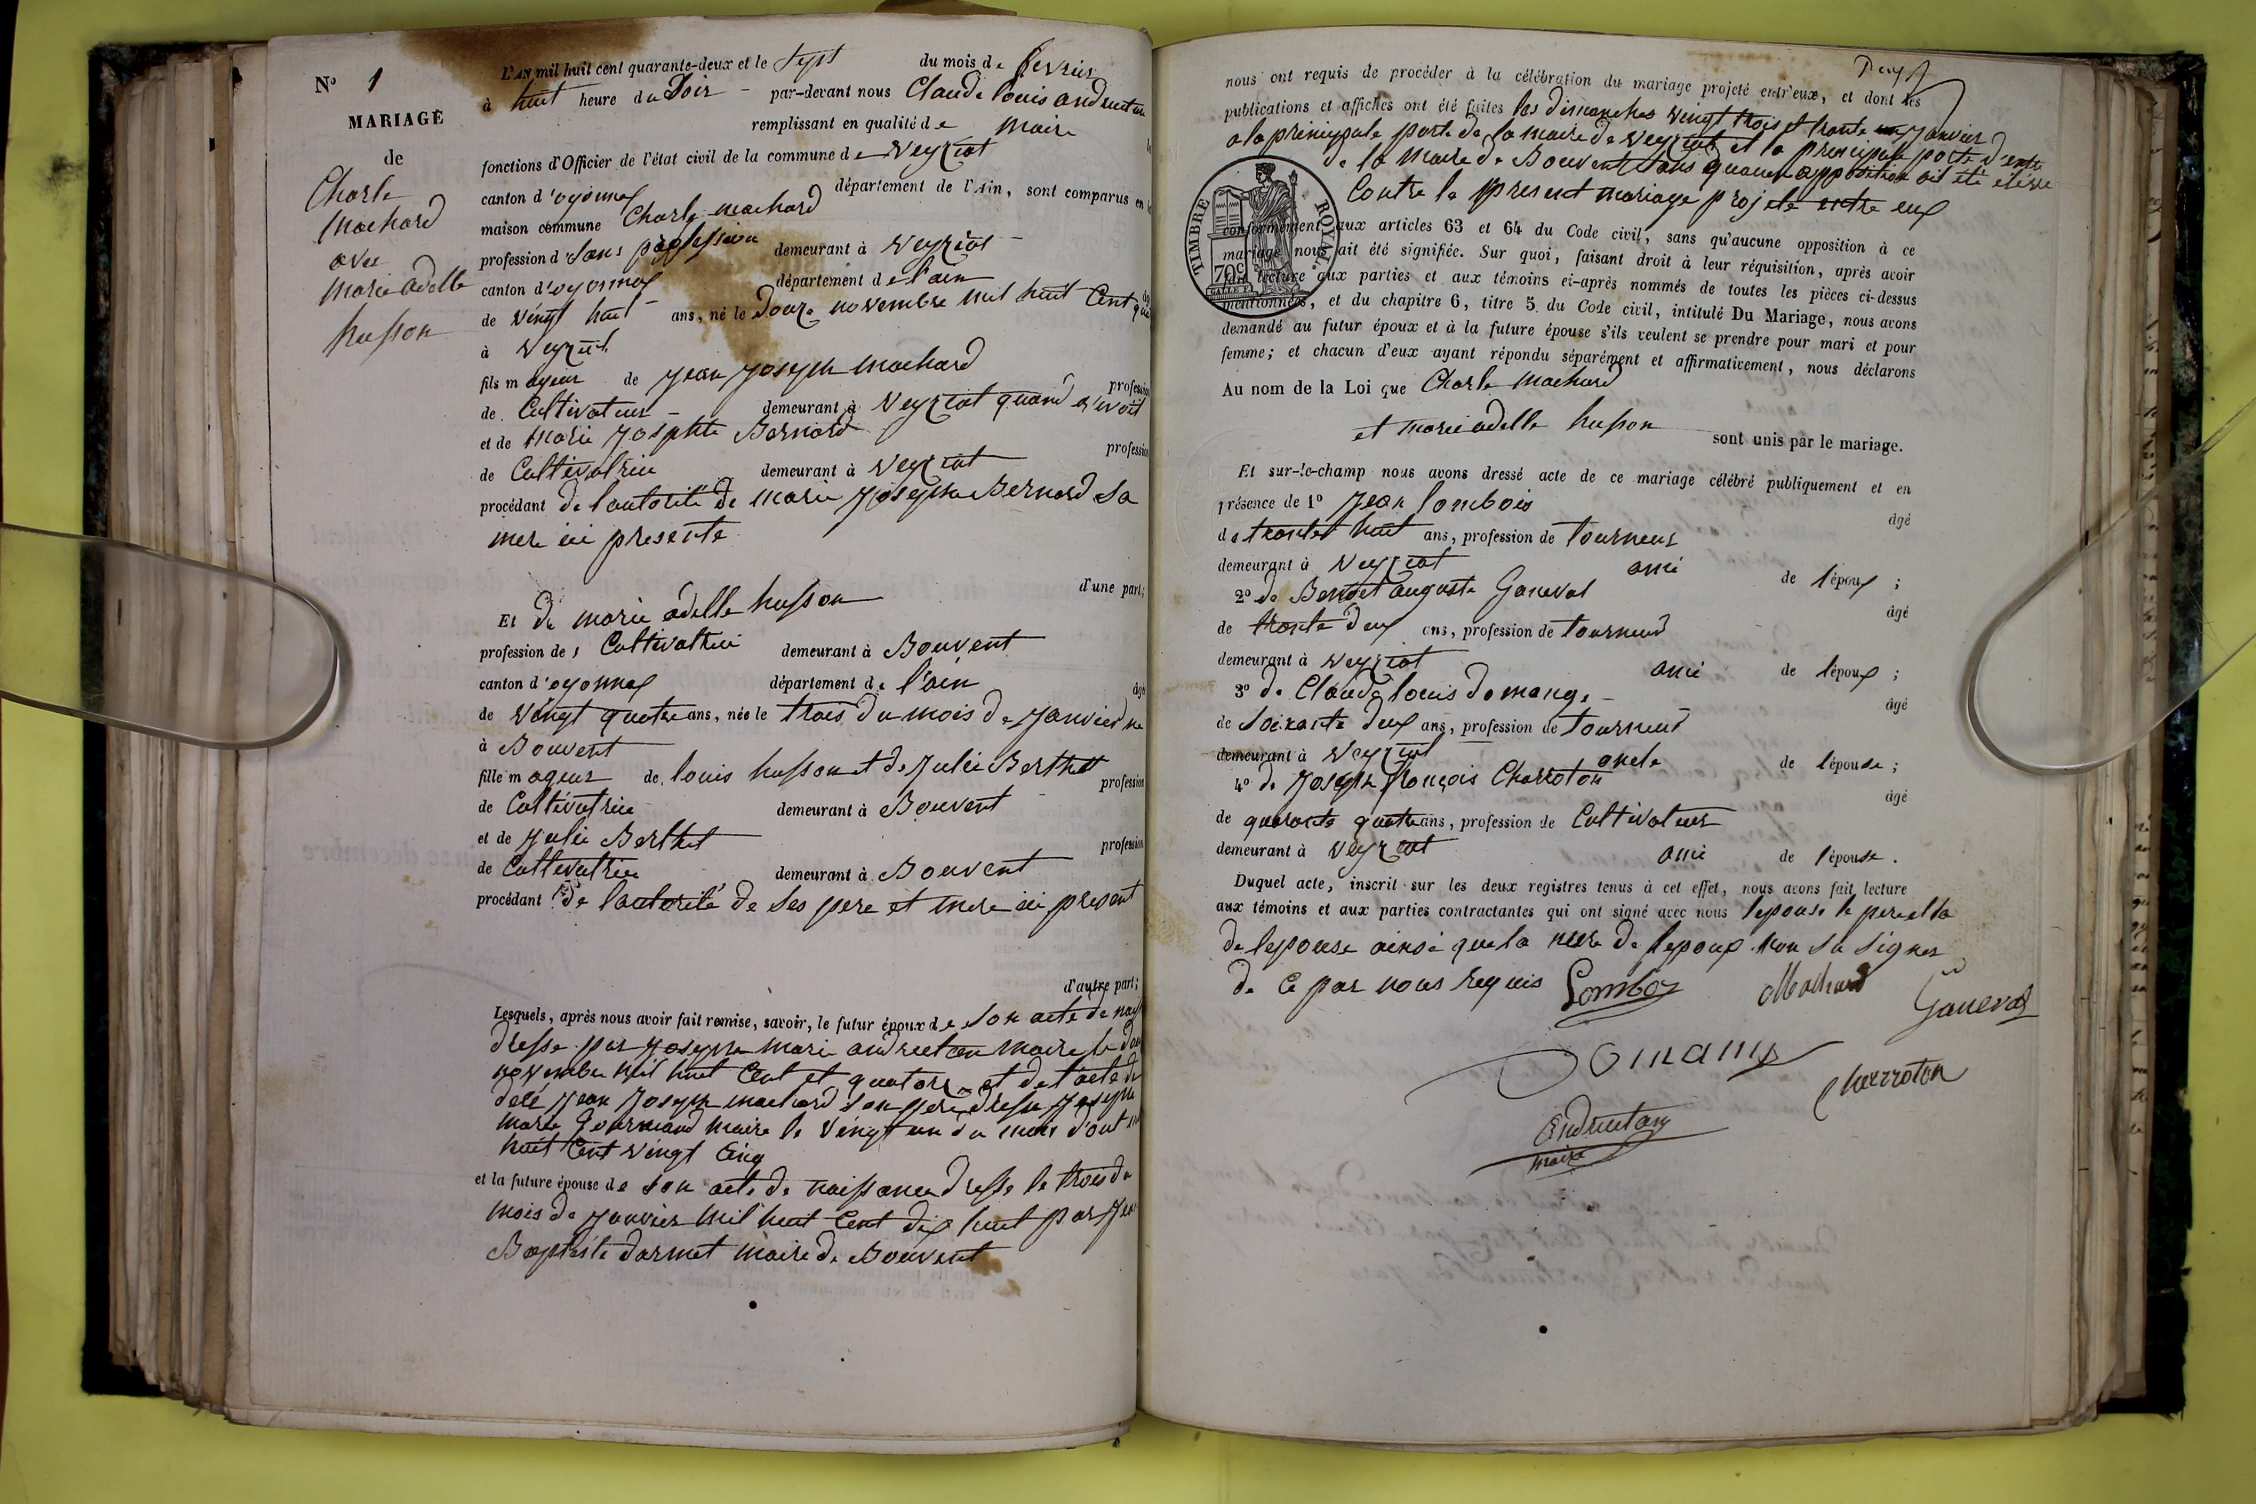 N° 1
MARIAGE
de
Charle
Machard
avec
Marie adelle
husson
L'AN mil huit cent quarante-deux et le Sept du mois de fevrier
à huit heure du Soir - par-devant nous Claude louis andruetan
remplissant en qualité de Maire
fonctions d'Officier de l'état civil de la commune de Veyziat
canton d'oyonnax département de l'Ain, sont comparus en
maison commune Charle machard
profession d sans proffession demeurant à Veyziat
canton d'oyonnax département de l'ain
de vingt huit ans, né le Douze novembre mil huit Cent
à Veyziat
fils mageur de Jean Joseph Machard profession
de Cultivateur demeurant à Veyziat quand vivoit
et de Marie Josephte Bernard profession
de Cultivatrice demeurant à Veyziat
procédant de l'autorité de marie Josephte Bernard Sa
mere ici presente
d'une part;
Et de marie adelle husson
profession de Cultivatrice demeurant à Bouvent
canton d'oyonnax département de l'ain âgé
de vingt quatre ans, née le trois du mois de Janvier
à Bouvent
fille mageur de louis husson et de Julie Berthet profession
de Cultivatrice demeurant à Bouvent
et de Julie Berthet profession
de Cultivatrice demeurant à Bouvent
procédant de l'autorité de Ses pere et mere ici present
d'autre part;
Lesquels, après nous avoir fait remise, savoir, le futur époux de son acte de
dresse par Joseph Marie andruetan Maire le
novembre mil huit Cent et quatorze et de l'acte de
Jean Joseph machard Son pere dresse Joseph
marie Gourmand Maire le vingt un du mois d'out
huit Cent vingt Cinq
et la future épouse de son acte de naissance dresse le trois du
mois de Janvier mil huit Cent dix huit par Jean
Baptiste darmet maire de Bouvent
Deux
nous ont requis de procéder à la célébration du mariage projeté entr'eux, et dont les
publications et affiches ont été faites les dimanches vingt trois et trante Janvier
a la principale porte de la mairie de Veyziat et la principale porte d'entre
de la Mairie de Bouvent Sans quaucune opposition ait été élévée
Contre le present mariage projeté entre eux
TIMBRE ROYAL.
70 c
conformément aux articles 63 et 64 du Code civil, sans qu'aucune opposition à ce
mariage nous ait été signifiée. Sur quoi, faisant droit à leur réquisition, après avoir
fait lecture aux parties et aux témoins ci-après nommés de toutes les pièces ci-dessus
mentionnées, et du chapitre 6, titre 5 du Code civil, intitulé Du Mariage, nous avons
demandé au futur époux et à la future épouse s'ils veulent se prendre pour mari et pour
femme; et chacun d'eux ayant répondu séparément et affirmativement, nous déclarons
Au nom de la Loi que Charle Machard
et marie adelle husson sont unis par le mariage.
Et sur-le-champ nous avons dressé acte de ce mariage célébré publiquement et en
présence de 1° Jean lombois âgé
de trante huit ans, profession de tourneur
demeurant à Veyziat ami de l'époux ;
2° de Benoet auguste Ganeval âgé
de trante deux ans, profession de tourneur
demeurant à Veyziat ami de l'époux ;
3° de Claude louis domange âgé
de soixante deux ans, profession de tourneur
demeurant à Veyziat oncle de l'épouse ;
4° de Joseph françois Charroton âgé
de quarante quatre ans, profession de Cultivateur
demeurant à Veyziat ami de l'épouse.
Duquel acte, inscrit sur les deux registres tenus à cet effet, nous avons fait lecture
aux témoins et aux parties contractantes qui ont signé avec nous lepouse le pere et la
de lepouse ainsi que la mere de lepoux non su signer
de Ce par nous requis
Lomboy
Machard
Ganeval
Domange
Charroton
Andruetan
maire